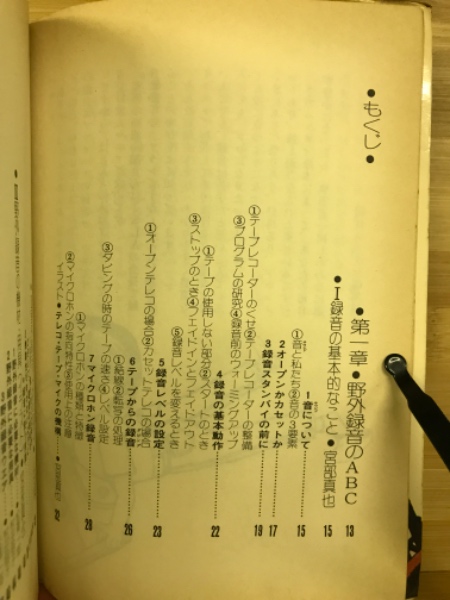 ●もくじ●
●第一章●野外録音のABC 13
●I録音の基本的なこと●宮部真也 15
1音について 15
①音と私たち②音の3要素
2オープンかカセットか 17
3録音スタンバイの前に 19
①テープレコーダーのくせ②テープレコーダーの整備
③プログラムの研究④録音前のウォーミングアップ
4録音の基本動作 22
①テープの使用しない部分②スタートのとき
③ストップのとき④フェイドインとフェイドアウト
⑤録音レベルを変えるとき
5録音レベルの設定 23
①オープンテレコの場合②カセットテレコの場合
6テープからの録音 26
①結線②転写の処理
③ダビングの時のテープの速さ④レベル設定
7マイクロホン録音 28
①マイクロホンの種類と特徴
②マイクロホンの指向特性③使用上の注意
イラスト●テレコ・テープ・マイクの機構 32